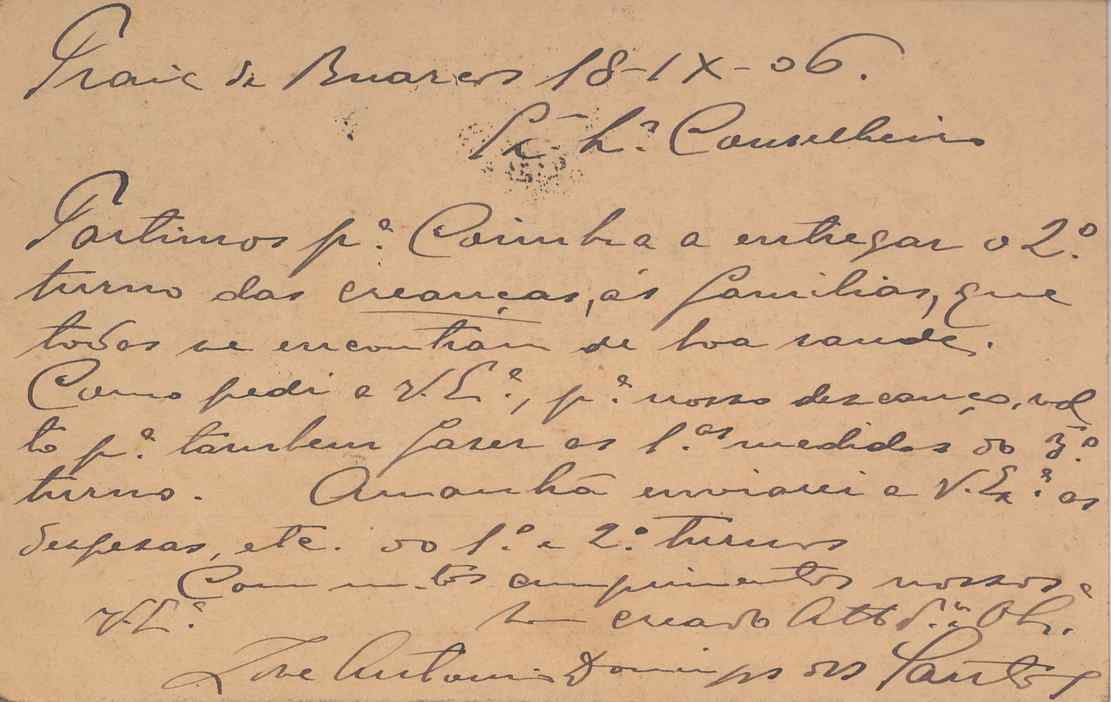 Praia de Buarcos 18-IX-06.
Conselheiro
Partimos p.ª Coimbra a entregar o 2.º
turno das creanças, ás familias, que
todas se encontram de boa saude.
Como pedi a V. E.ª, p.ª nosso descanço, vol
to p.ª tambem faser as 1.as medidas do 3.º
turno. Amanhã enviarei a V. Ex.ª as
despesas, etc. do 1.º e 2.º turnos
Com m.tos cumprimentos nossos a
V. E.ª creado Att.º
José Antonio Domingos dos Santos